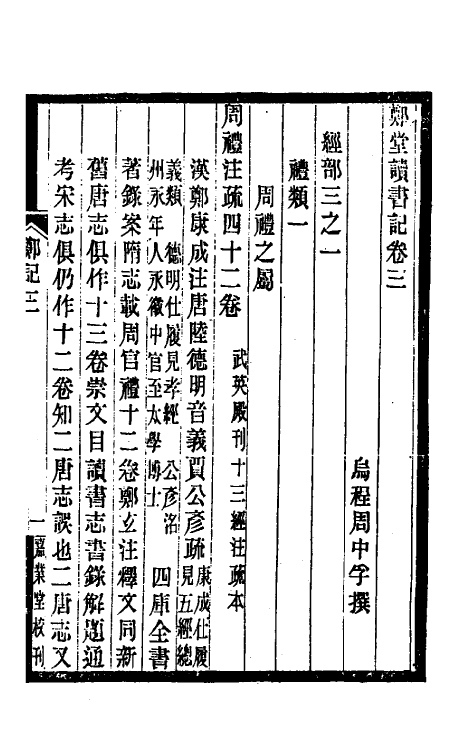 鄭堂讀書記卷三
烏程周中孚撰
經部三之一
禮類一
周禮之屬
周禮注疏四十二卷 武英殿刊十三經注疏本
漢鄭康成注唐陸德明音義賈公彥疏康成仕履見五經總
義類 德明仕履見孝經 公彥洺
州永年人永徽中官至太學博士 四庫全書
著錄案隋志載周官禮十二卷鄭玄注釋文同新
舊唐志俱作十三卷崇文目讀書志書錄解題通
考宋志俱仍作十二卷知二唐志誤也二唐志又
鄭記三
一
嘉業堂校刊